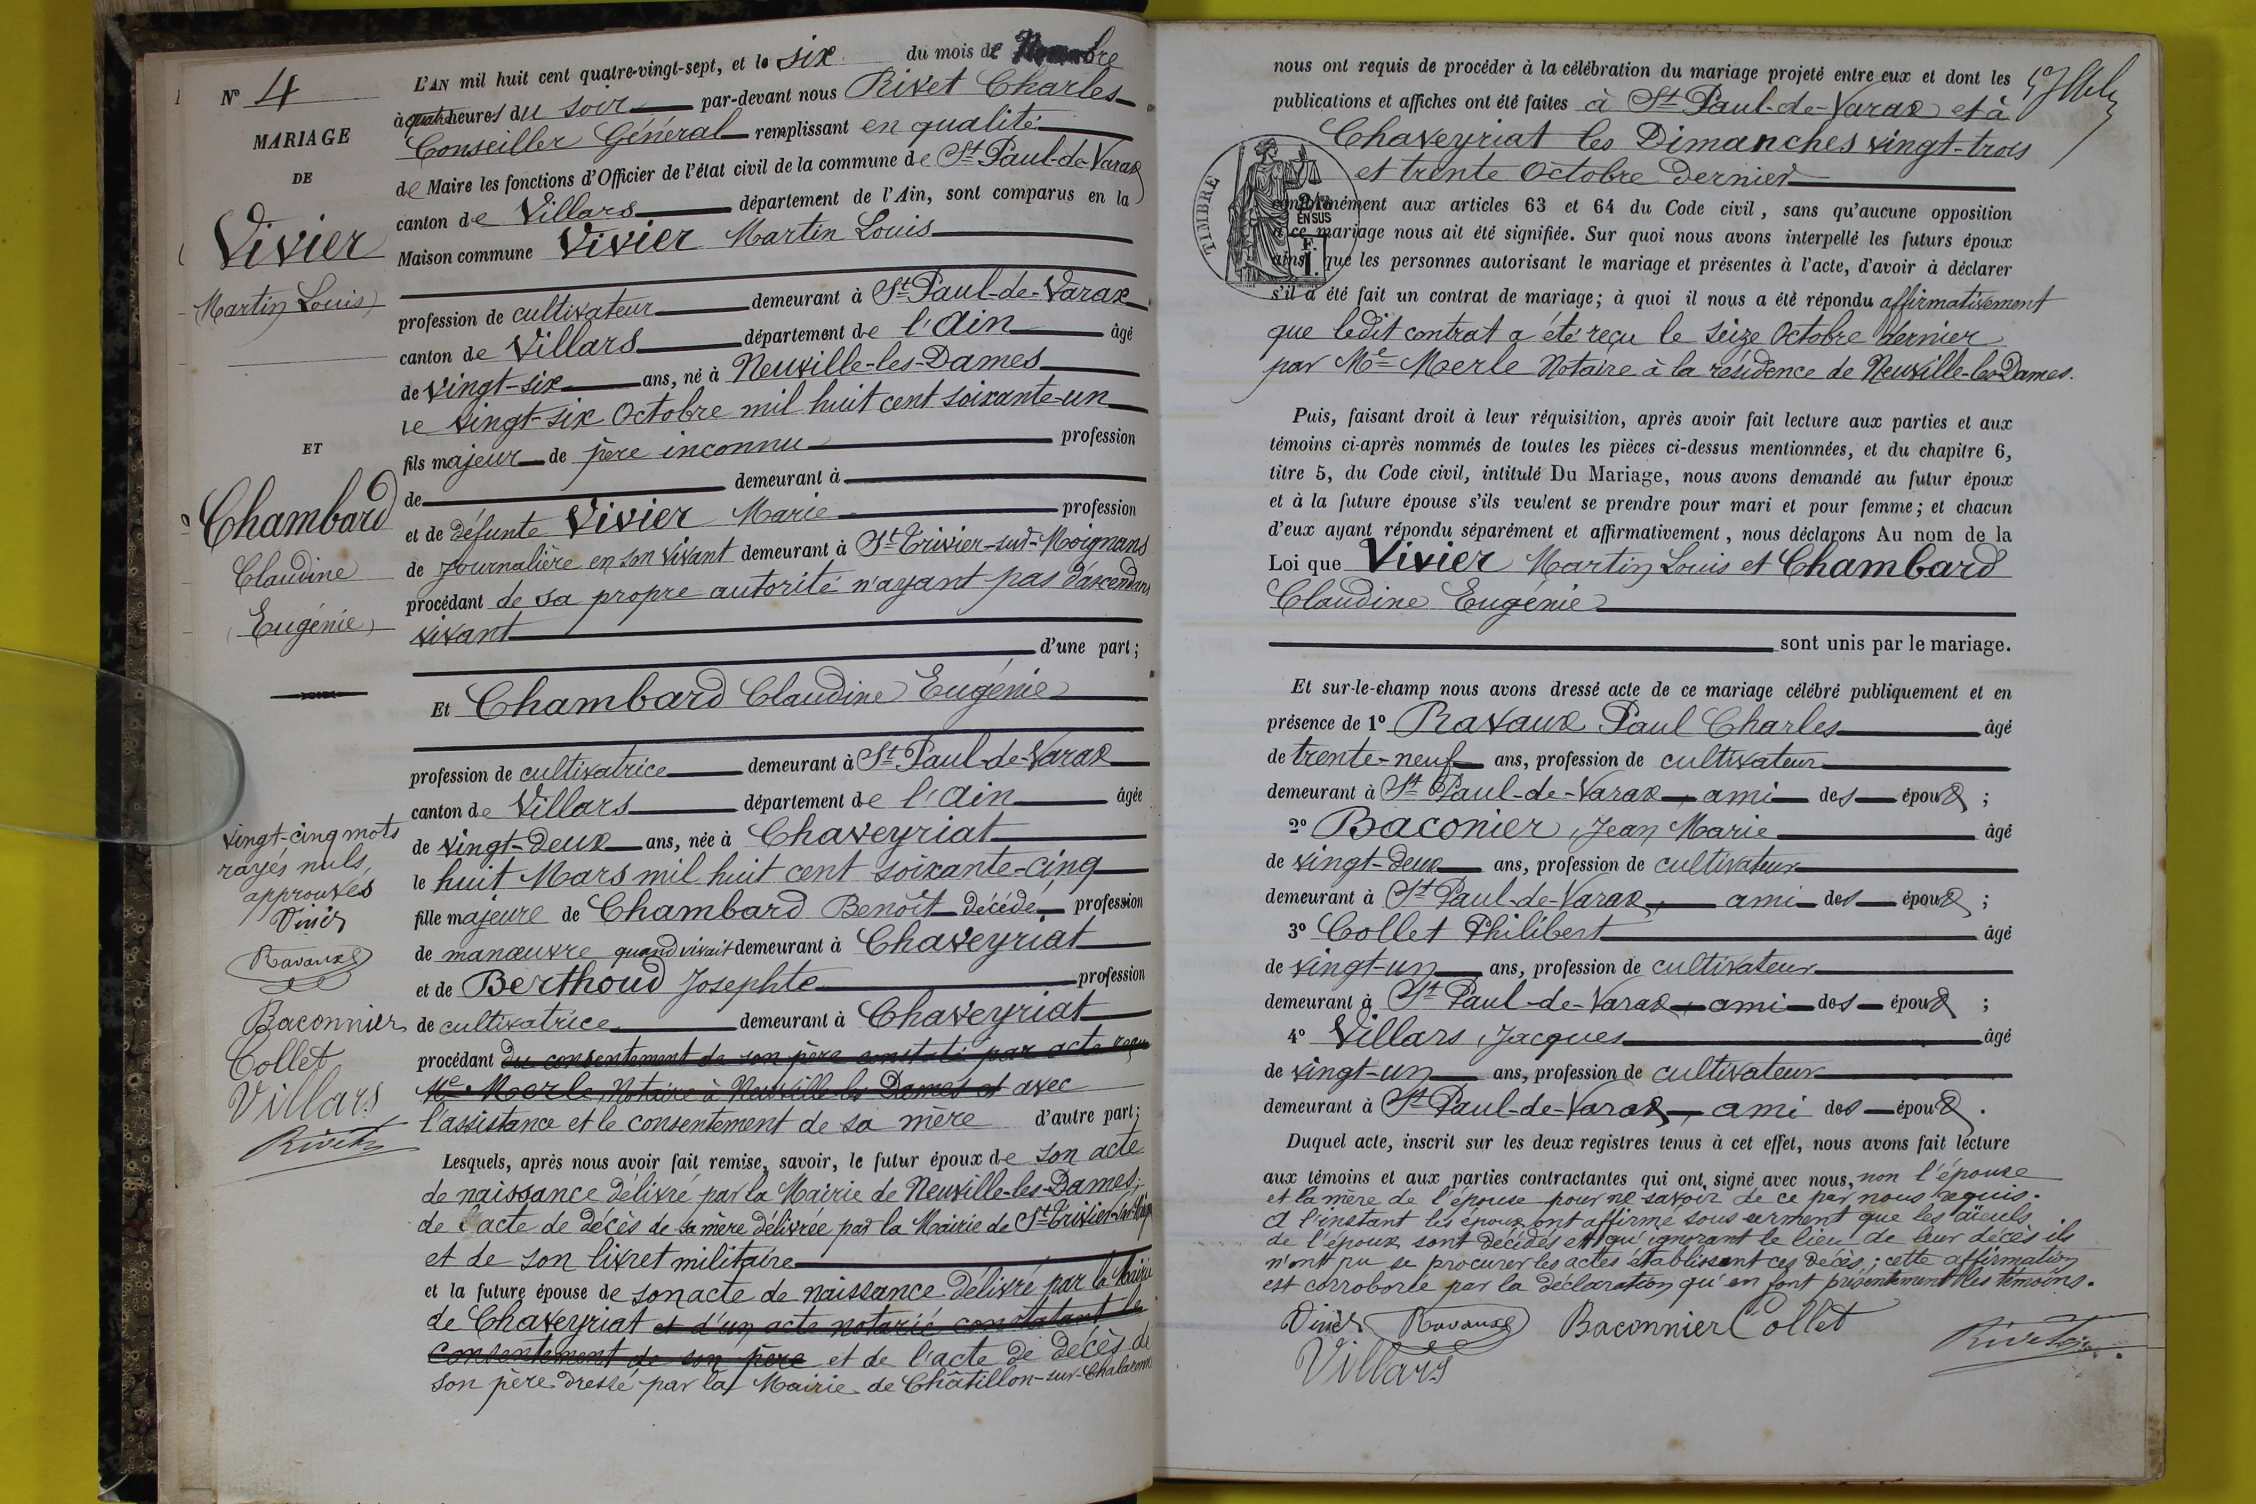 N° 4
MARIAGE
DE
Vivier
Martin Louis
ET
Chambard
Claudine
Eugénie
vingt-cinq mots
rayés nuls,
approuvés
Vivier
Ravaux
Baconnier
Collet
Villars
Rivet
L'AN mil huit cent quatre-vingt-sept, et le six du mois de Novembre
à quatre heures du soir par-devant nous Rivet Charles
Conseiller Général remplissant en qualité
de Maire les fonctions d'Officier de l'état civil de la commune de St Paul-de-Varax
canton de Villars département de l'Ain, sont comparus en la
Maison commune Vivier Martin Louis
profession de cultivateur demeurant à St Paul-de-Varax
canton de Villars département de l'Ain âgé
de vingt-six ans, né à Neuville-les-Dames
le vingt-six Octobre mil huit cent soixante-un
fils majeur de père inconnu profession
de demeurant à
et de défunte Vivier Marie profession
de journalière en son vivant demeurant à St Trivier-sur-Moignans
procédant de sa propre autorité n'ayant pas d'ascendans
vivant
d'une part;
Et Chambard Claudine Eugénie
profession de cultivatrice demeurant à St Paul-de-Varax
canton de Villars département de l'Ain âgée
de vingt-deux ans, née à Chaveyriat
le huit Mars mil huit cent soixante-cinq
fille majeure de Chambard Benoît décédé, profession
de manœuvre quand vivait demeurant à Chaveyriat
et de Berthoud Josephte profession
de cultivatrice demeurant à Chaveyriat
procédant du consentement de son père constaté par acte reçu
Me Merle Notaire à Neuville-les-Dames et avec
l'assistance et le consentement de sa mère d'autre part;
Lesquels, après nous avoir fait remise, savoir, le futur époux de son acte
de naissance délivré par la Mairie de Neuville-les-Dames,
de l'acte de décès de sa mère délivrée par la Mairie de St Trivier-sur-Moign
et de son livret militaire
et la future épouse de son acte de naissance délivré par la Mairie
de Chaveyriat et d'un acte notarié constatant le
consentement de son père et de l'acte de décès de
son père dressé par la Mairie de Châtillon-sur-Chalaronne
nous ont requis de procéder à la célébration du mariage projeté entre eux et dont les
publications et affiches ont été faites à St Paul-de-Varax et à
Chaveyriat les Dimanches vingt-trois
et trente Octobre dernier
TIMBRE
2/10
EN SUS
F.
1.
conformément aux articles 63 et 64 du Code civil, sans qu'aucune opposition
à ce mariage nous ait été signifiée. Sur quoi nous avons interpellé les futurs époux
ainsi que les personnes autorisant le mariage et présentes à l'acte, d'avoir à déclarer
s'il a été fait un contrat de mariage; à quoi il nous a été répondu affirmativement
que ledit contrat a été reçu le seize Octobre dernier
par Me Merle Notaire à la résidence de Neuville-les-Dames.
Puis, faisant droit à leur réquisition, après avoir fait lecture aux parties et aux
témoins ci-après nommés de toutes les pièces ci-dessus mentionnées, et du chapitre 6,
titre 5, du Code civil, intitulé Du Mariage, nous avons demandé au futur époux
et à la future épouse s'ils veulent se prendre pour mari et pour femme; et chacun
d'eux ayant répondu séparément et affirmativement, nous déclarons Au nom de la
Loi que Vivier Martin Louis et Chambard
Claudine Eugénie
sont unis par le mariage.
Et sur-le-champ nous avons dressé acte de ce mariage célébré publiquement et en
présence de 1° Ravaux Paul Charles âgé
de trente-neuf ans, profession de cultivateur
demeurant à St Paul-de-Varax, ami des époux ;
2° Baconier, Jean Marie âgé
de vingt-deux ans, profession de cultivateur
demeurant à St Paul-de-Varax, ami des époux ;
3° Collet Philibert âgé
de vingt-un ans, profession de cultivateur
demeurant à St Paul-de-Varax, ami des époux ;
4° Villars, Jacques âgé
de vingt-un ans, profession de cultivateur
demeurant à St Paul-de-Varax, ami des époux .
Duquel acte, inscrit sur les deux registres tenus à cet effet, nous avons fait lecture
aux témoins et aux parties contractantes qui ont signé avec nous, non l'épouse
et la mère de l'épouse pour ne savoir de ce par nous requis.
A l'instant les époux ont affirmé sous serment que les aïeuls
de l'époux sont décédés et qu'ignorant le lieu de leur décès ils
n'ont pu se procurer les actes établissant ces décès; cette affirmation
est corroborée par la déclaration qu'en font présentement les témoins.
Vivier Ravaux Baconnier Collet
Rivet
Villars